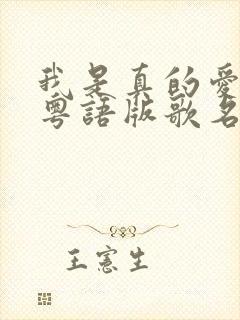 我是真的愛
粵語版歌名
王憲生